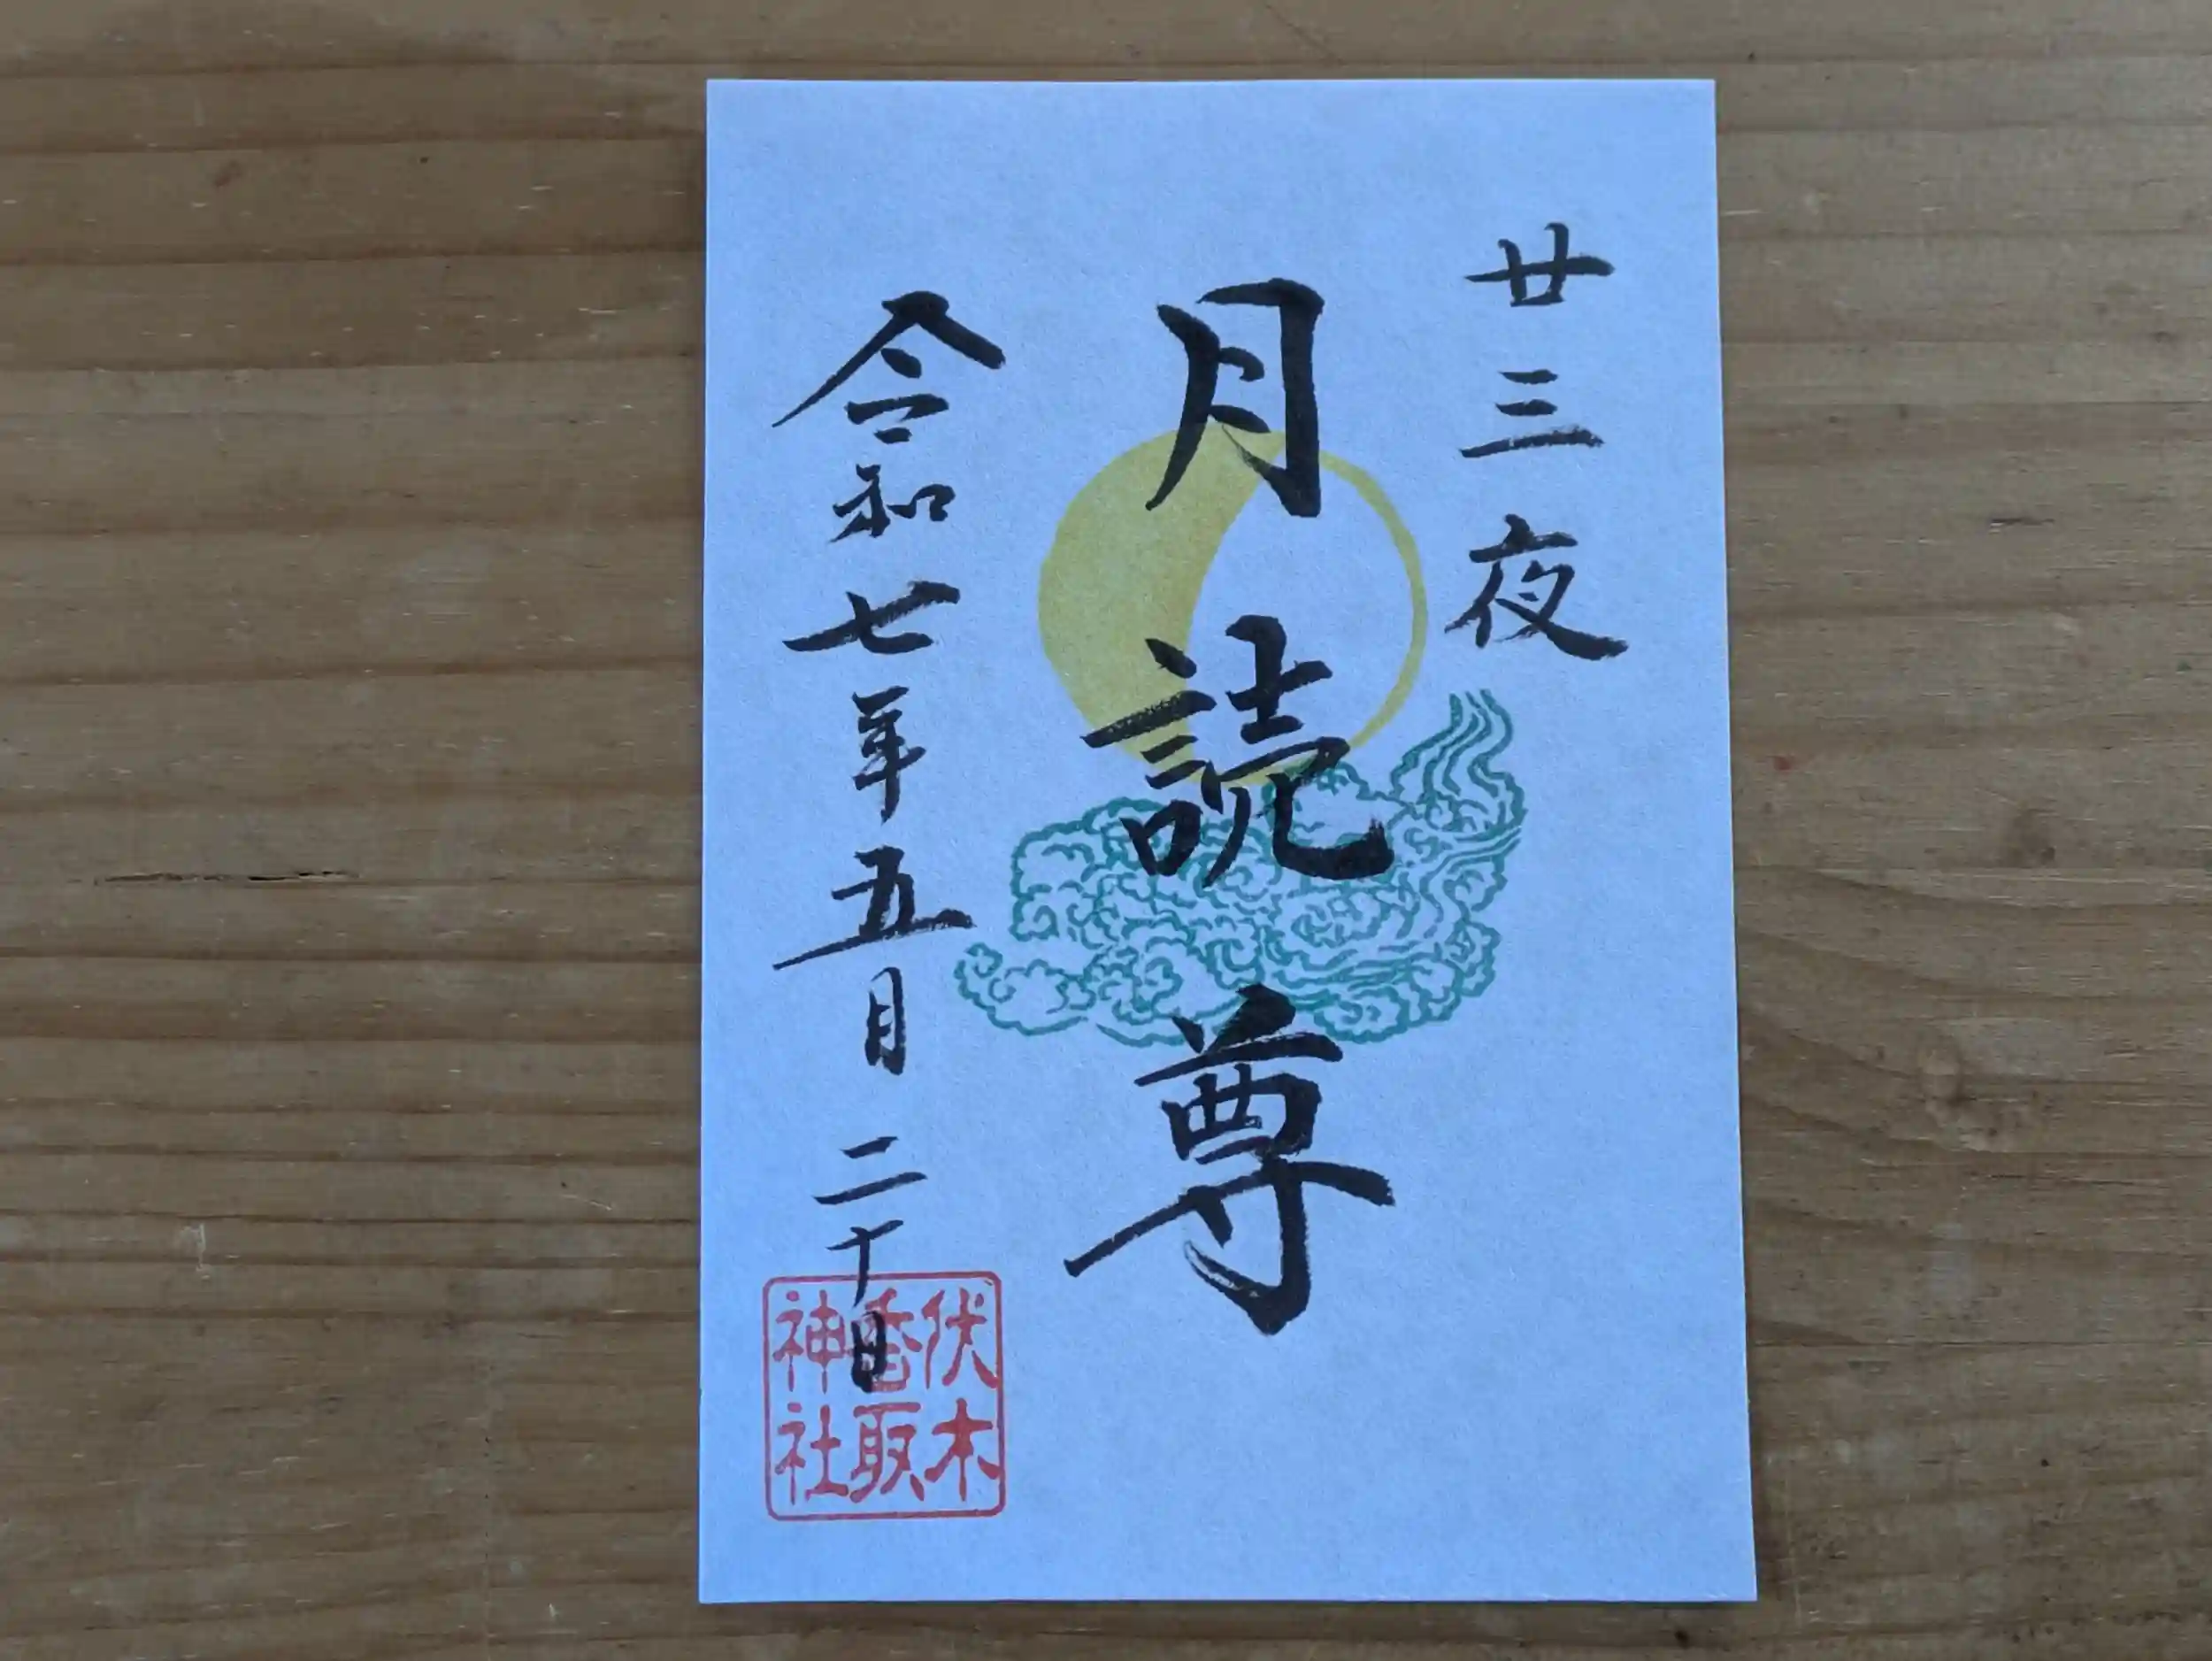 廿三夜
月読尊
令和七年五月二十日
伏木
香取
神社